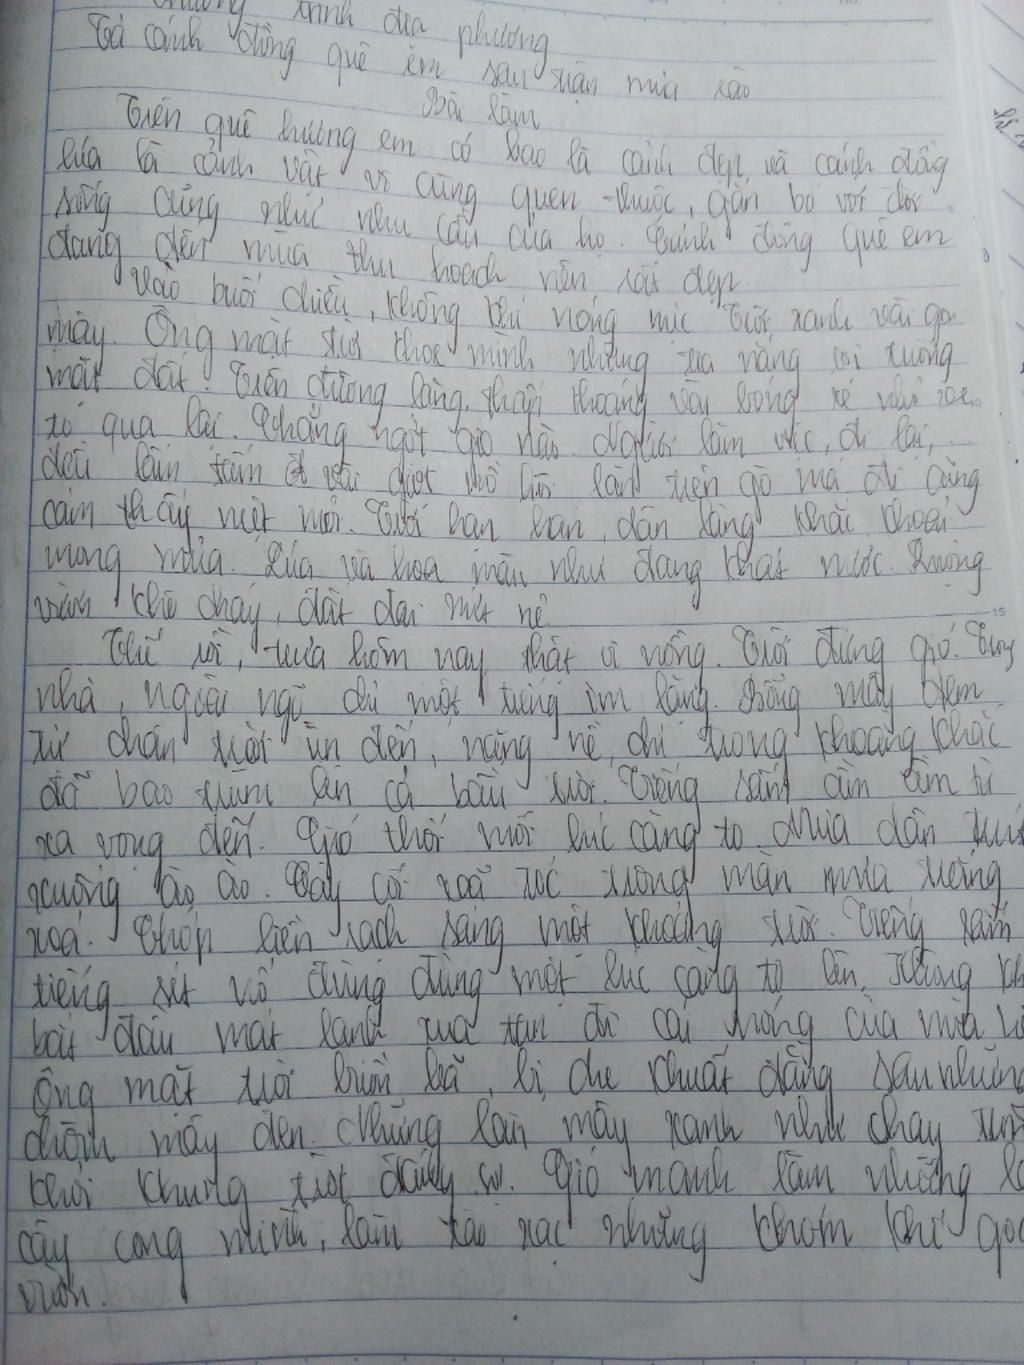 trình địa phương
Tả cánh đồng quê em sau trận mưa rào
Bài làm
Trên quê hương em có bao là cảnh đẹp và cánh đồng
lúa là cảnh vật vô cùng quen thuộc, gắn bó với đời
sống cũng như nhu cầu của họ. Cánh đồng quê em
đang đến mùa thu hoạch nên rất đẹp.
Vào buổi chiều, không khí nóng nực Trời xanh vài gợn
mây. Ông mặt trời khoe mình những tia nắng rọi xuống
mặt đất. Trên đường làng, thấp thoáng vài bóng xe
qua lại. Chẳng ngớt gió nào. Người làm việc, đi lại,
đều lấm tấm vài giọt mồ hôi lăn trên gò má ai cũng
cảm thấy mệt mỏi. Trời hạn hán, dân làng khắc khoải
mong mưa. Lúa và hoa màu như đang khát nước. Ruộng
vườn khô cháy, đất đai nứt nẻ.
Thế rồi, trưa hôm nay thật oi nồng. Trời đứng gió. Trong
nhà, ngoài ngõ chỉ một tiếng im lặng. Bỗng mây đen
từ chân trời ùn đến, nặng nề, chỉ trong khoảng khắc
đã bao trùm lên cả bầu trời. Tiếng sấm ầm ầm từ
xa vọng đến. Gió thổi mỗi lúc càng to. Mưa dần trút
xuống ào ào. Cây cối xoã tóc trong màn mưa trắng
xoá. Chớp liền rạch sáng một khoảng trời. Tiếng sấm
tiếng sét vỗ đùng đùng một lúc càng to lên, Không
bắt đầu mát lạnh xua tan đi cái nóng của mùa
Ông mặt trời buồn bã, bị che khuất đằng sau những
chòm mây đen. Những làn mây xanh như chạy
khỏi khung trời đầy sợ. Gió mạnh làm những
cây cong mình, làm xào xạc những khóm
vườn.